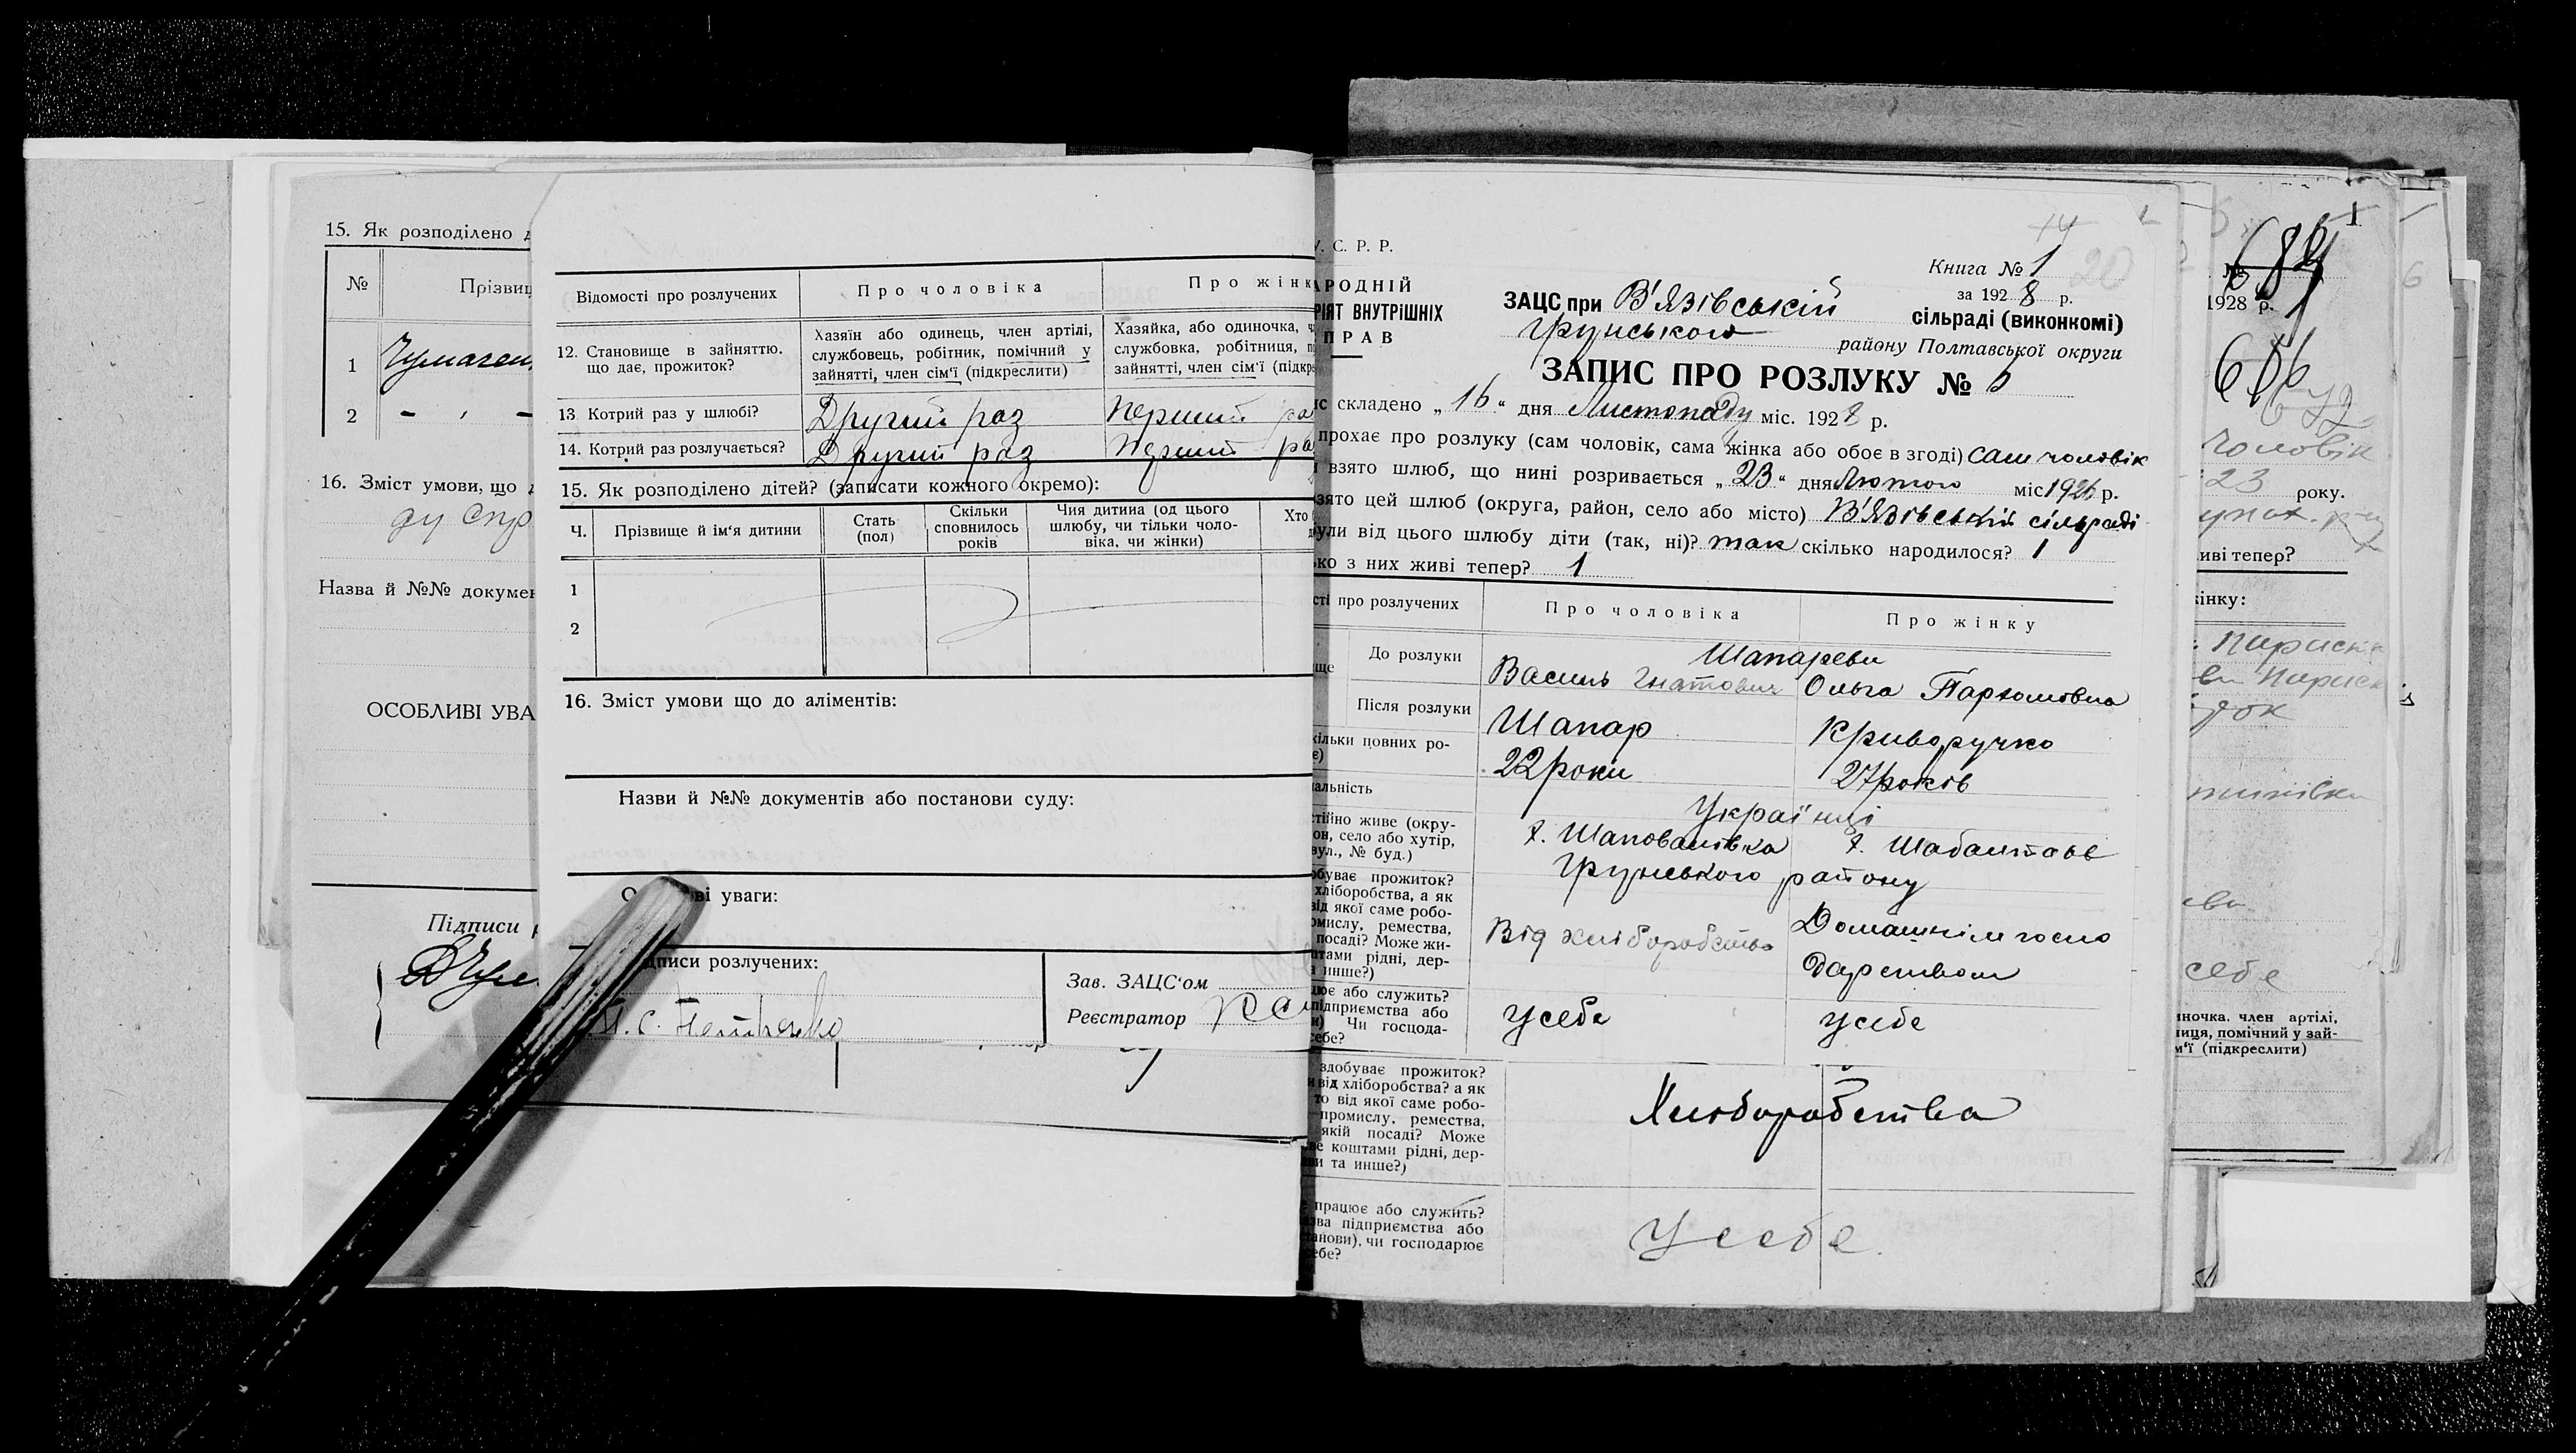 15. Як розподілено д
№ Прізвищ
1 Чумачен
2 - , -
16. Зміст умови, що д
ду спр
Назва й №№ докумен
ОСОБЛИВІ УВА
Підписи р
Відомості про розлучених
Про чоловіка
Про жінк
12. Становище в зайняттю. що дає, прожиток?
Хазяїн або одинець, член артілі, службовець, робітник, помічний у зайнятті, член сім'ї (підкреслити)
Хазяйка, або одиночка, ч
службовка, робітниця, п
зайнятті, член сім'ї (підкре
13 Котрий раз у шлюбі? Другий раз Перший ра
14. Котрий раз розлучається? Другий раз Перший ра
15. Як розподілено дітей? (записати кожного окремо):
Ч. Прізвище й ім'я дитини
Стать (пол)
Скільки сповнилось років
Чия дитина (од цього шлюбу, чи тільки чоловіка, чи жінки)
Хто
1
2
16. Зміст умови що до аліментів:
Назви й №№ документів або постанови суду:
ві уваги:
дписи розлучених:
Зав. ЗАЦС'ом
Реєстратор
У. С. Р. Р.
АРОДНІЙ
РІЯТ ВНУТРІШНІХ
ПРАВ
Книга № 1
20
за 1928 р.
ЗАЦС при В'язівській сільраді (виконкомі)
Грунського району Полтавської округи
ЗАПИС ПРО РОЗЛУКУ №
ис складено „16" дня Листопаду міс. 1928 р.
прохає про розлуку (сам чоловік, сама жінка або обоє в згоді) сам чоловік
взято шлюб, що нині розривається „23" дня Лютого міс 1926 р.
зято цей шлюб (округа, район, село або місто) В'язівській сільраді
ули від цього шлюбу діти (так, ні)? так скілько народилося? 1
ько з них живі тепер? 1
сті про розлучених
Про чоловіка
Про жінку
ще
До розлуки
Шапареви
Василь Гнатович Ольга Пархомовна
Після розлуки
Шапар Криворучко
кільки повних ро-
є)
22 роки 27 років
альність
Українці
тійно живе (окру-
он, село або хутір,
вул., № буд.)
х. Шаповалівка х. Шабалтаєве
Грунського району
обуває прожиток?
хліборобства, а як
від якої саме робо-
омислу, ремества,
посаді? Може жи-
штами рідні, дер-
а инше?)
Від хліборобства
Домашнім госпо
дарством
цює або служить?
підприємства або
и) Чи господа-
себе?
У себе У себе
здобуває прожиток?
и від хліборобства? а як
то від якої саме робо-
промислу, ремества,
якій посаді? Може
ве коштами рідні, дер-
ви та инше?)
Хліборобства
працює або служить?
зва підприємства або
танови), чи господарює
ебе?
У себе
№
1928 р.
чоловік
23 року.
иві тепер?
інку:
Париск
док
себе
ночка, член артілі,
ниця, помічний у зай-
м'ї (підкреслити)
6